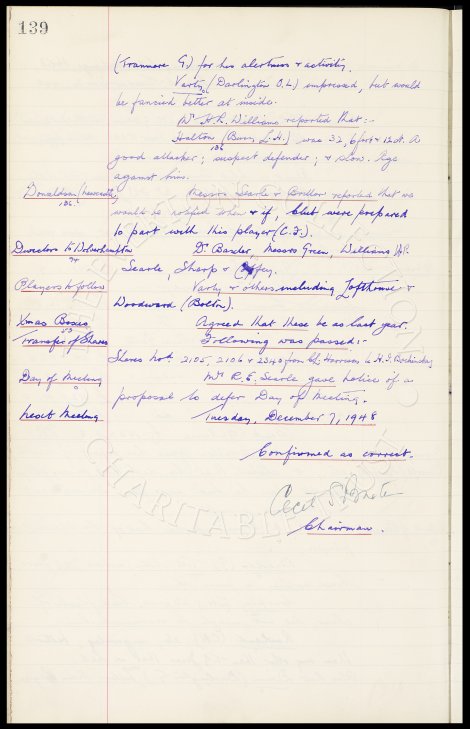 139
(Tranmere G.) for his alertness & activity.
Varty (Darlington O.L.) impressed, but would
be fancied better at inside.
Mr. H.R. Williams reported that:-
Halton (Bury L.H.) was 32, 6 foot & 12 st. A
136
good attacker; suspect defender; & slow. Age
against him.
Donaldson (Newcastle) Messrs Searle & Bridler reported that we
136
would be notified when & if, Club were prepared
to part with this player (C.F.).
Directors to Wolverhampton Dr. Baxter Messrs Green, Williams H.R.
Searle, Sharp & Coffey.
Players to follow Varty & others including Lofthouse &
Woodward (Bolton).
Xmas Boxes Agreed that these be as last year.
Transfer of Shares Following was passed:-
Shares Nod. 2105, 2106 & 2340 from Harrison to H.
Day of Meeting Mr. R.E. Searle gave notice of a
proposal to defer Day of Meeting.
Next Meeting Tuesday, December 7, 1948
Confirmed as correct.
Cecil S. Baxter
Chairman.
CHARITABLE TRUST